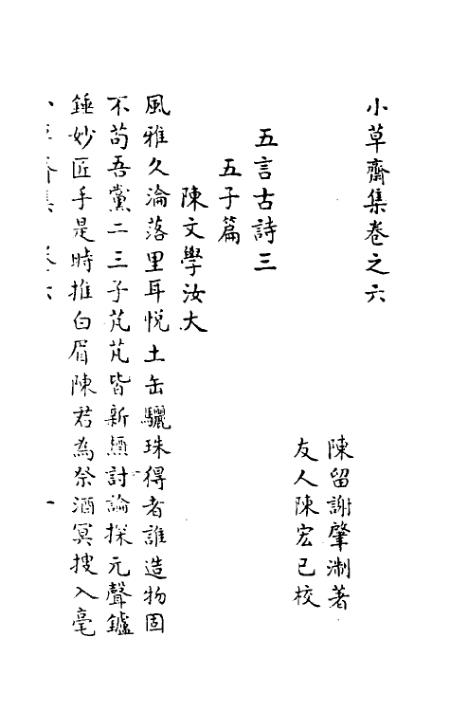 小草齋集卷之六
陳留謝肇淛著
友人陳宏己校
五言古詩三
五子篇
陳文學汝大
風雅久淪落里耳悅土缶驪珠得者誰造物固
不茍吾黨二三子芃芃皆新穎討論探元聲鑪
錘妙匠手是時推白眉陳君為祭酒冥搜入毫
小草齋集 卷六 一